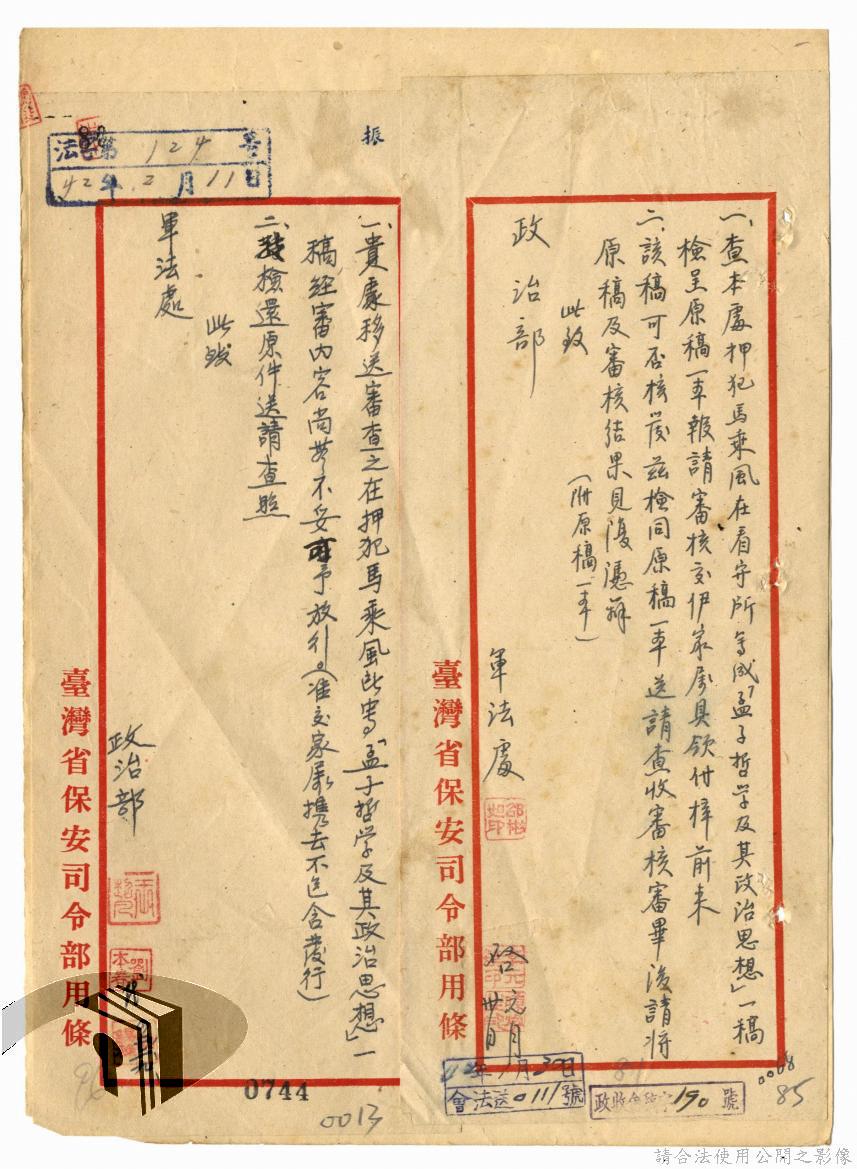 一、查本處押犯馬乘風在看守所寫成「孟子哲学及其政治思想」一稿
檢呈原稿一本報請審核交伊家屬具領付梓前来
二、該稿可否核發茲檢同原稿一本送請查收審核審畢後請將
原稿及審核结果見復憑辦
此致
政治部
(附原稿一本)
軍法處
啓 元月卅日
臺灣省保安司令部用條
42年1月30日
會法送0111號
政收 字190號
0068
85
振
法 第124号
42年2月11日
一、貴處移送審查之在押犯馬乘風所寫「孟子哲学及其政治思想」一
稿经審內容尚無不妥可予放行。(准交家屬携去不包含發行)
二、檢還原件送請查照
此致
軍法處
政治部
臺灣省保安司令部用條
0744
0013
請合法使用公開之影像